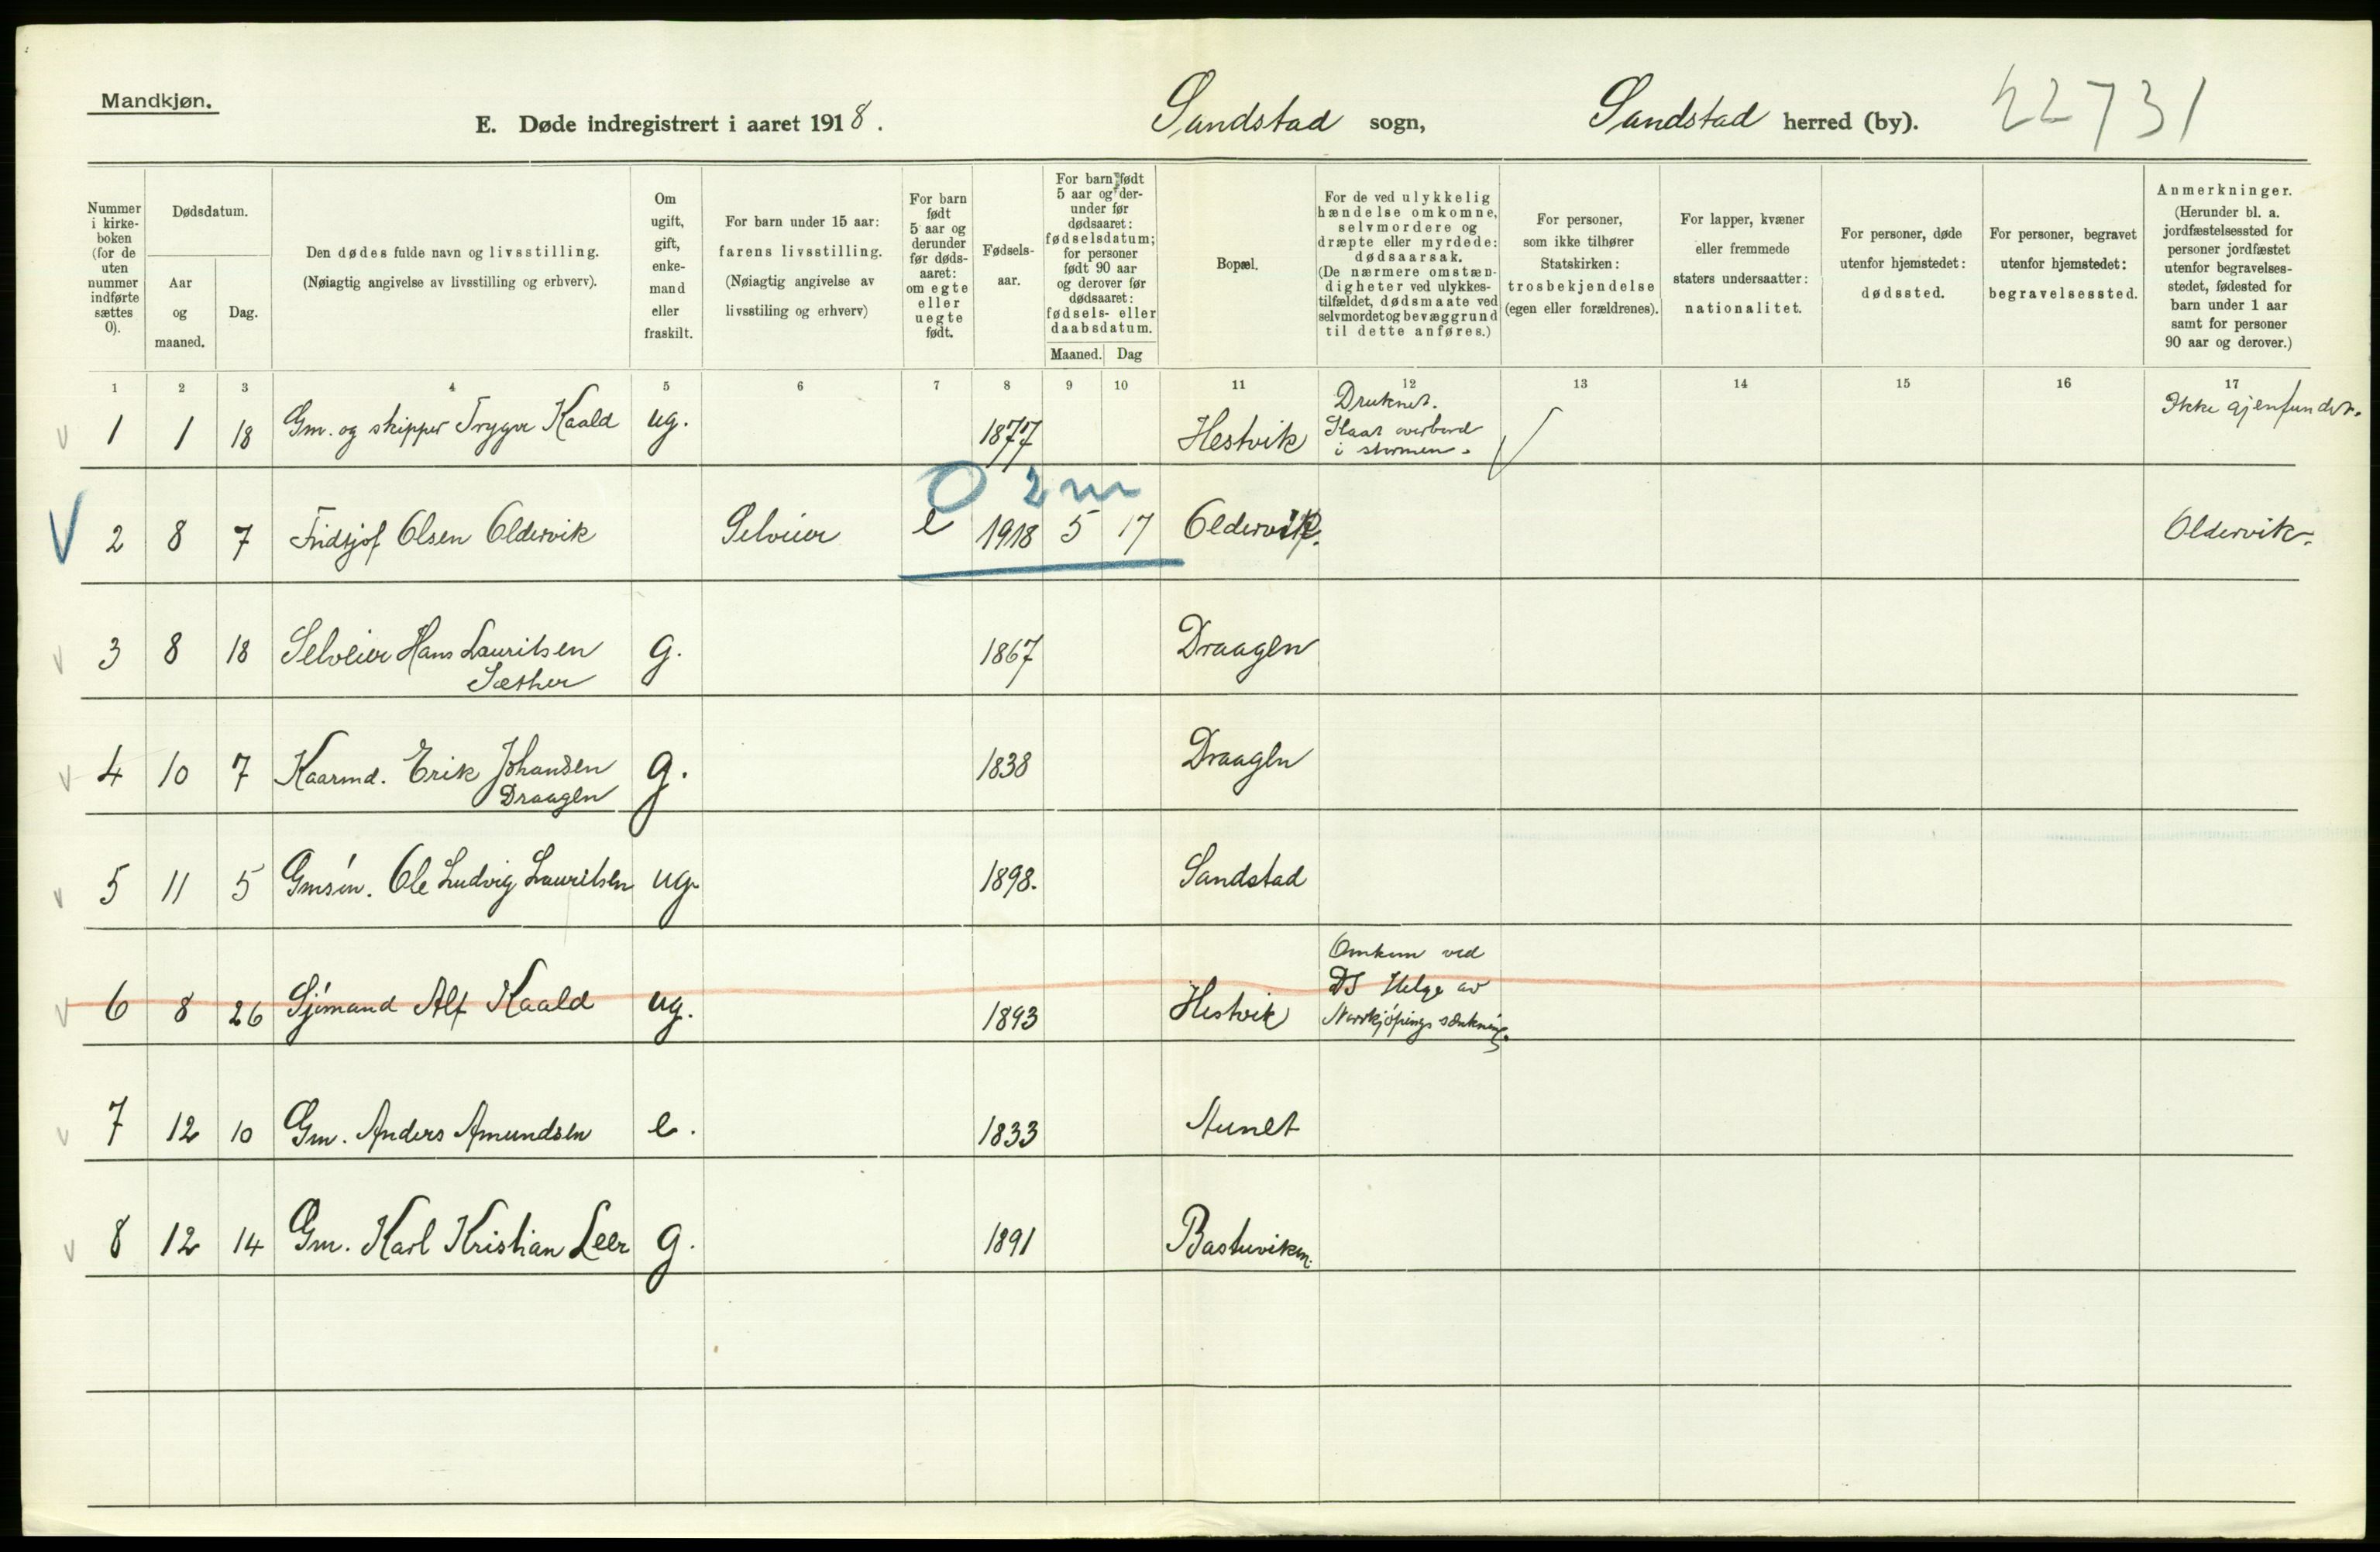 Mandkjøn.
E. Døde indregistrert i aaret 1918. Sandstad sogn, Sandstad herred (by). 22731
Nummer i kirke-boken (for de uten nummer indførte sættes 0).
Dødsdatum.
Aar og maaned.
Dag.
Den dødes fulde navn og livsstilling.
(Nøiagtig angivelse av livsstilling og erhverv).
Om ugift, gift, enke-mand eller fraskilt.
For barn under 15 aar: farens livsstilling.
(Nøiagtig angivelse av livsstiling og erhverv)
For barn født 5 aar og derunder før døds-aaret: om egte eller uegte født.
Fødsels-aar.
For barn født 5 aar og der-under før dødsaaret: fødselsdatum; for personer født 90 aar og derover før dødsaaret: fødsels- eller daabsdatum.
Maaned. Dag
Bopæl.
For de ved ulykkelig hændelse omkomne, selvmordere og dræpte eller myrdede: dødsaarsak.
(De nærmere omstæn-digheter ved ulykkes-tilfældet, dødsmaate ved selvmordet og bevæggrund til dette anføres.)
For personer, som ikke tilhører Statskirken: trosbekjendelse (egen eller forældrenes).
For lapper, kvæner eller fremmede staters undersaatter: nationalitet.
For personer, døde utenfor hjemstedet: dødssted.
For personer, begravet utenfor hjemstedet: begravelsessted.
Anmerkninger.
(Herunder bl. a. jordfæstelsessted for personer jordfæstet utenfor begravelses-stedet, fødested for barn under 1 aar samt for personer 90 aar og derover.)
1 2 3 4 5 6 7 8 9 10 11 12 13 14 15 16 17
1 1 18 Gm. og skipper Trygve Kaald ug. 1877 Hestvik Druknet. Slaat overbord i stormen. Ikke gjenfundet.
0 2 m
2 8 7 Fridtjof Olsen Oldervik Selveier e 1918 5 17 Oldervik. Oldervik.
3 8 18 Selveier Hans Lauritsen g. 1867 Draagen
Sæther
4 10 7 Kaarmd. Erik Johansen g. 1838 Draagen
Draagen
5 11 5 Gmsøn. Ole Ludvig Lauritsen ug. 1898. Sandstad
6 8 26 Sjømand Alf Kaald ug. 1893 Hestvik Omkom ved DS Helge av Norrkjøpings sænkning.
7 12 10 Gm. Anders Amundsen e. 1833 Aunet
8 12 14 Gm. Karl Kristian Leer g. 1891 Bastuviken.